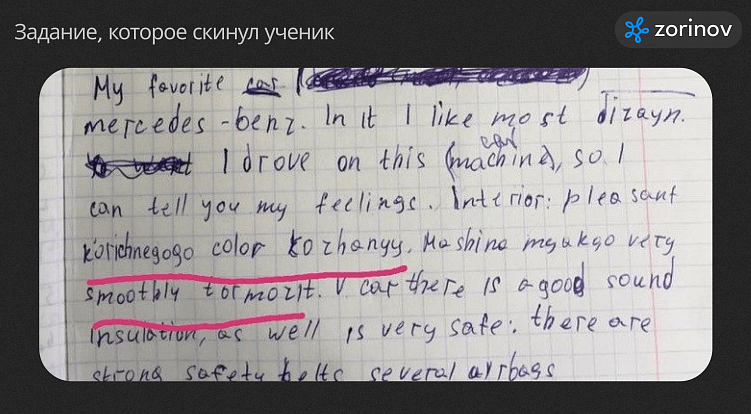 Задание, которое скинул ученик
zorinov
My favorite car
mercedes-benz. In it I like most dizayn.
car
I drove on this (machine), so I
can tell you my feelings. Interior: pleasant
korichnegogo color kozhanyy. Mashina myakgo very
smoothly tormozit. V car there is a good sound
insulation, as well is very safe: there are
strong safety belts several airbags